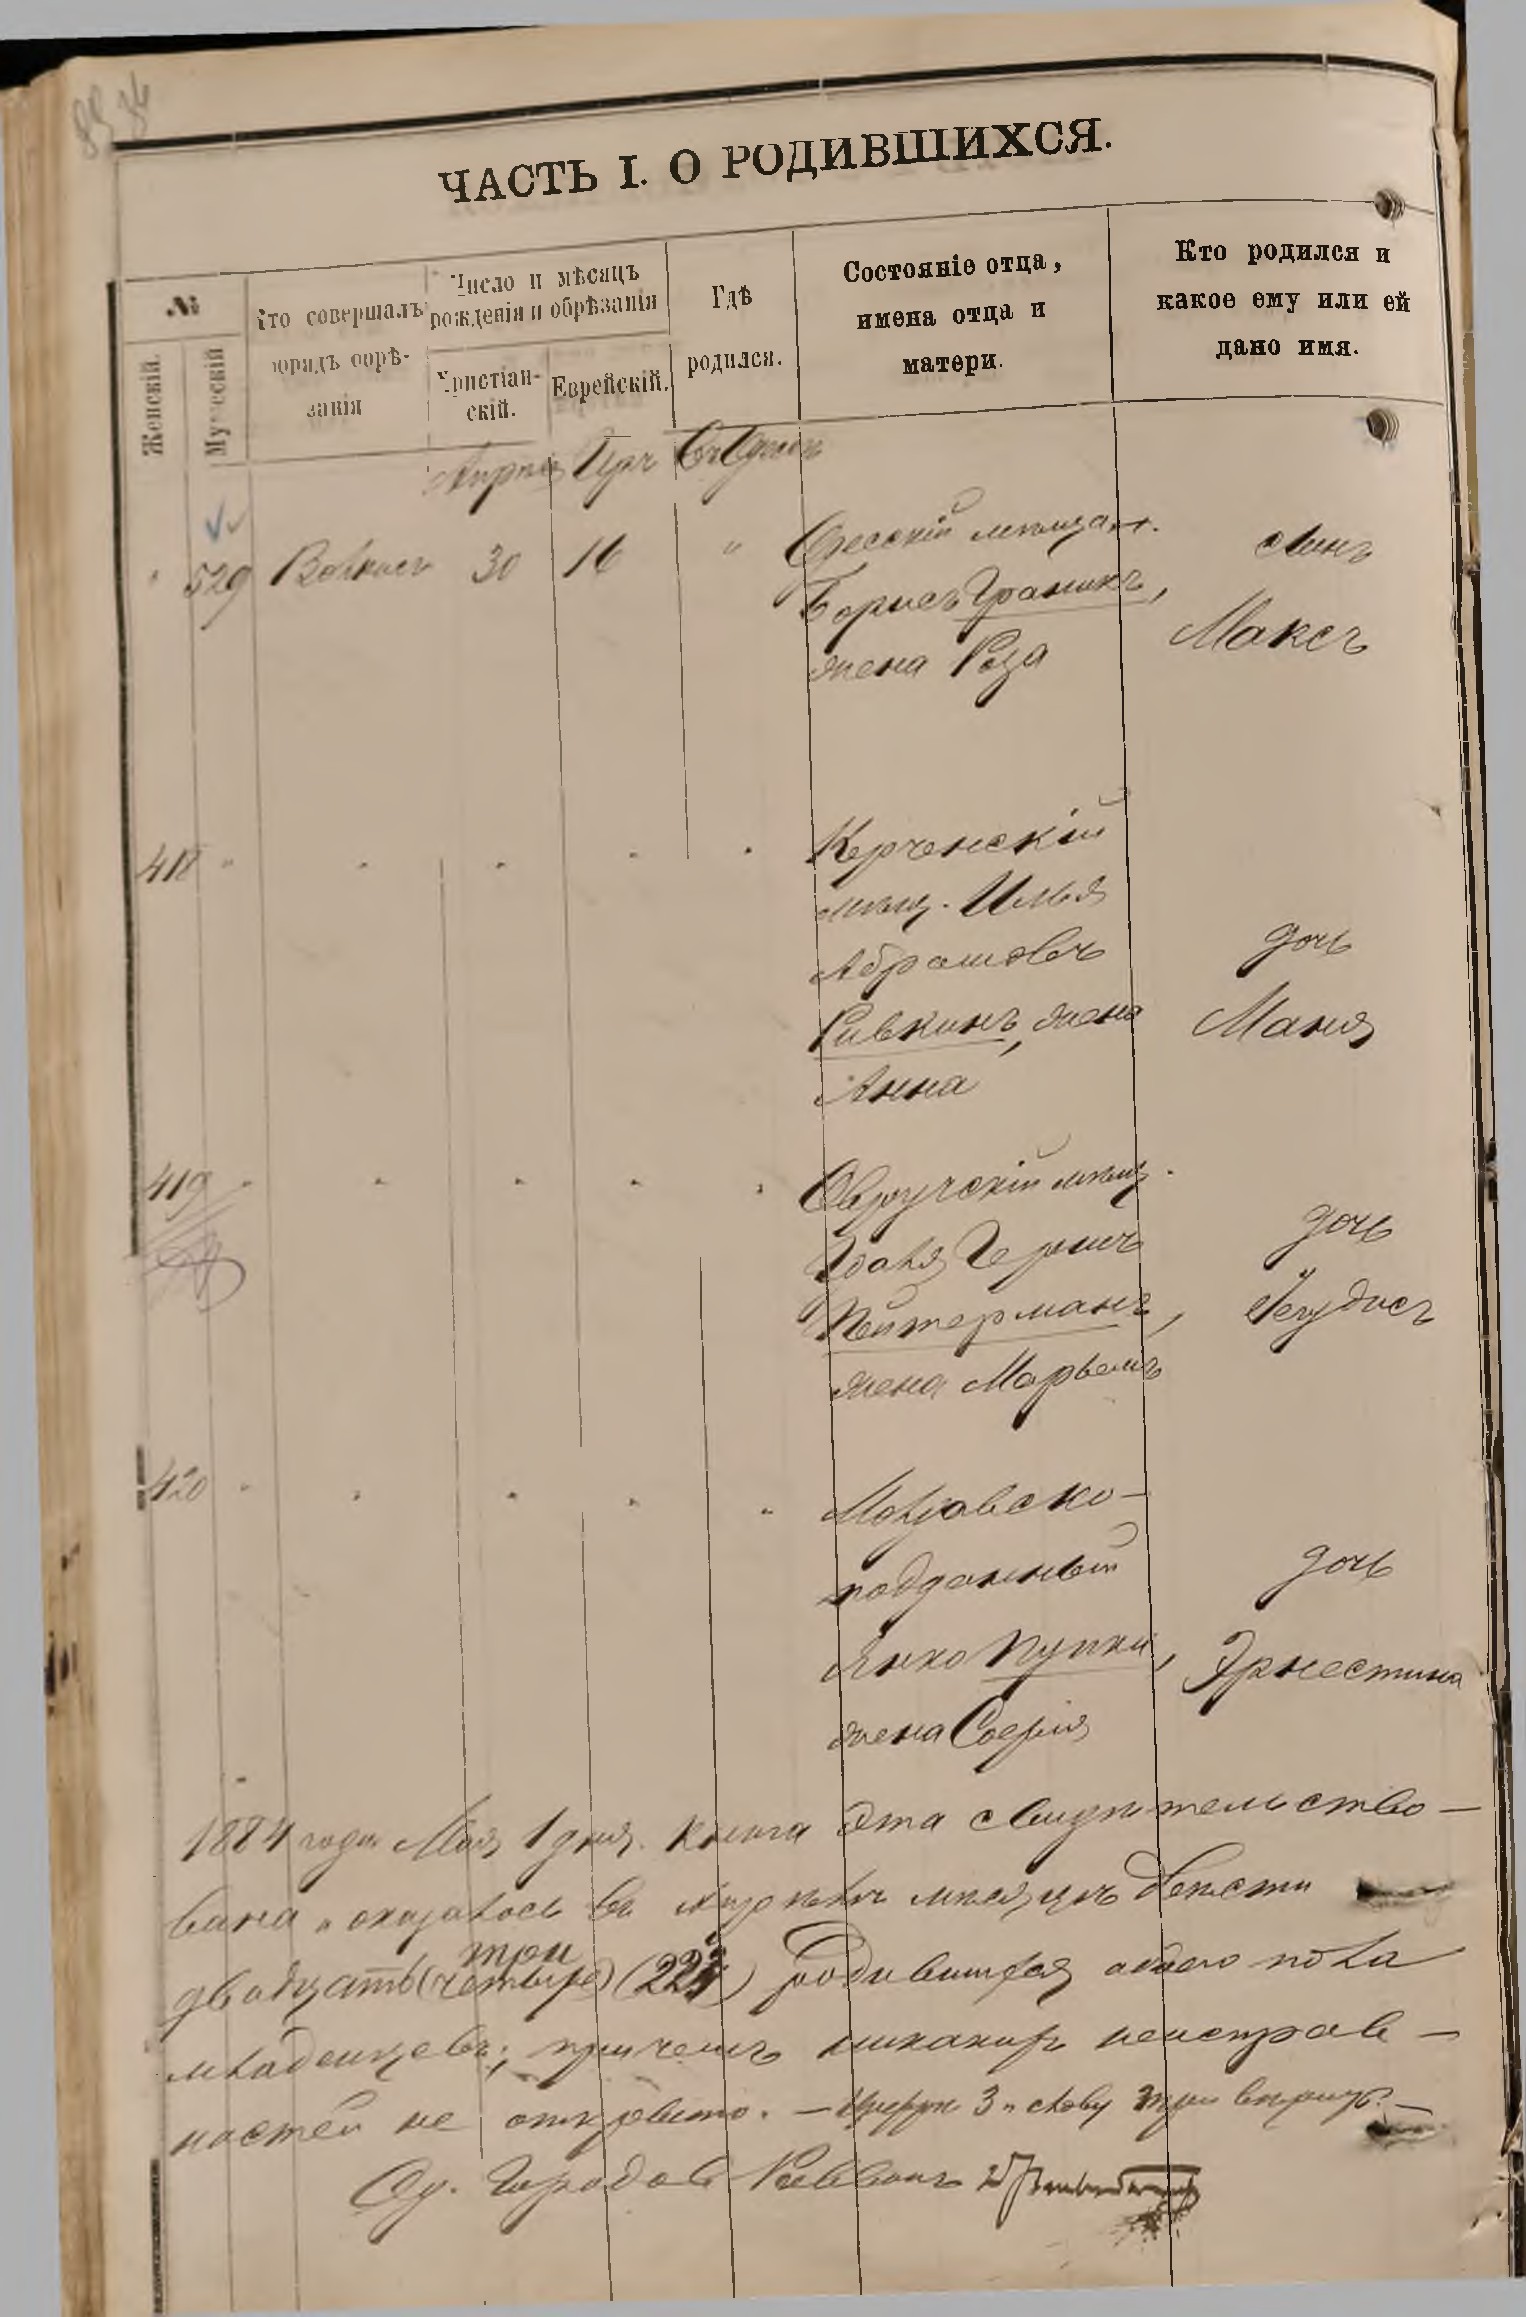 ЧАСТЬ I. О РОДИВШИХСЯ.
№
Женскій.
Мужескій
Кто совершалъ
обрядъ обрѣ-
занія
Число и мѣсяцъ
рожденія и обрѣзанія
Христіан-
скій.
Еврейскій.
Гдѣ
родился.
Состояніе отца,
имена отца и
матери.
Кто родился и
какое ему или ей
дано имя.
Апрѣль Іяръ Въ Одессѣ
" 529 Волкасъ 30 16 " Одесскій мѣщан.
Борисъ Граникъ,
жена Роза
сынъ
Максъ
418 " " " " " Керченскій
мѣщ. Илья
Абрамовъ
Ривкинъ, жена
Анна
дочь
Маня
419 " " " " " Овручскій мѣщ.
Гершъ
Пейтерманъ,
жена Марьемъ
дочь
420 " " " " "
подданный
Янко
жена Софія
дочь
Эрнестина
1884 года Мая 1 дня. Книга эта свидѣтельство-
вана и оказалось въ Апрѣлѣ мѣсяцѣ двѣсти
три
двадцать (четыре) (223) родившихся обоего пола
младенцевъ; причемъ никакихъ неисправ-
ностей не открыто. — Цифру 3 и слову три вѣрить. —
Од. Городов. Раввинъ